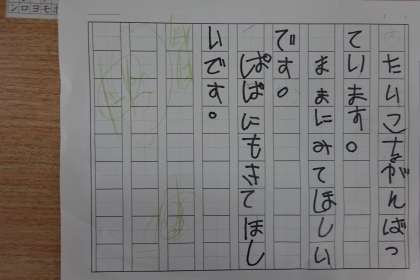 たいこをがんばっ
ています。
ままにみてほしい
です。
ぱぱにもきてほし
いです。